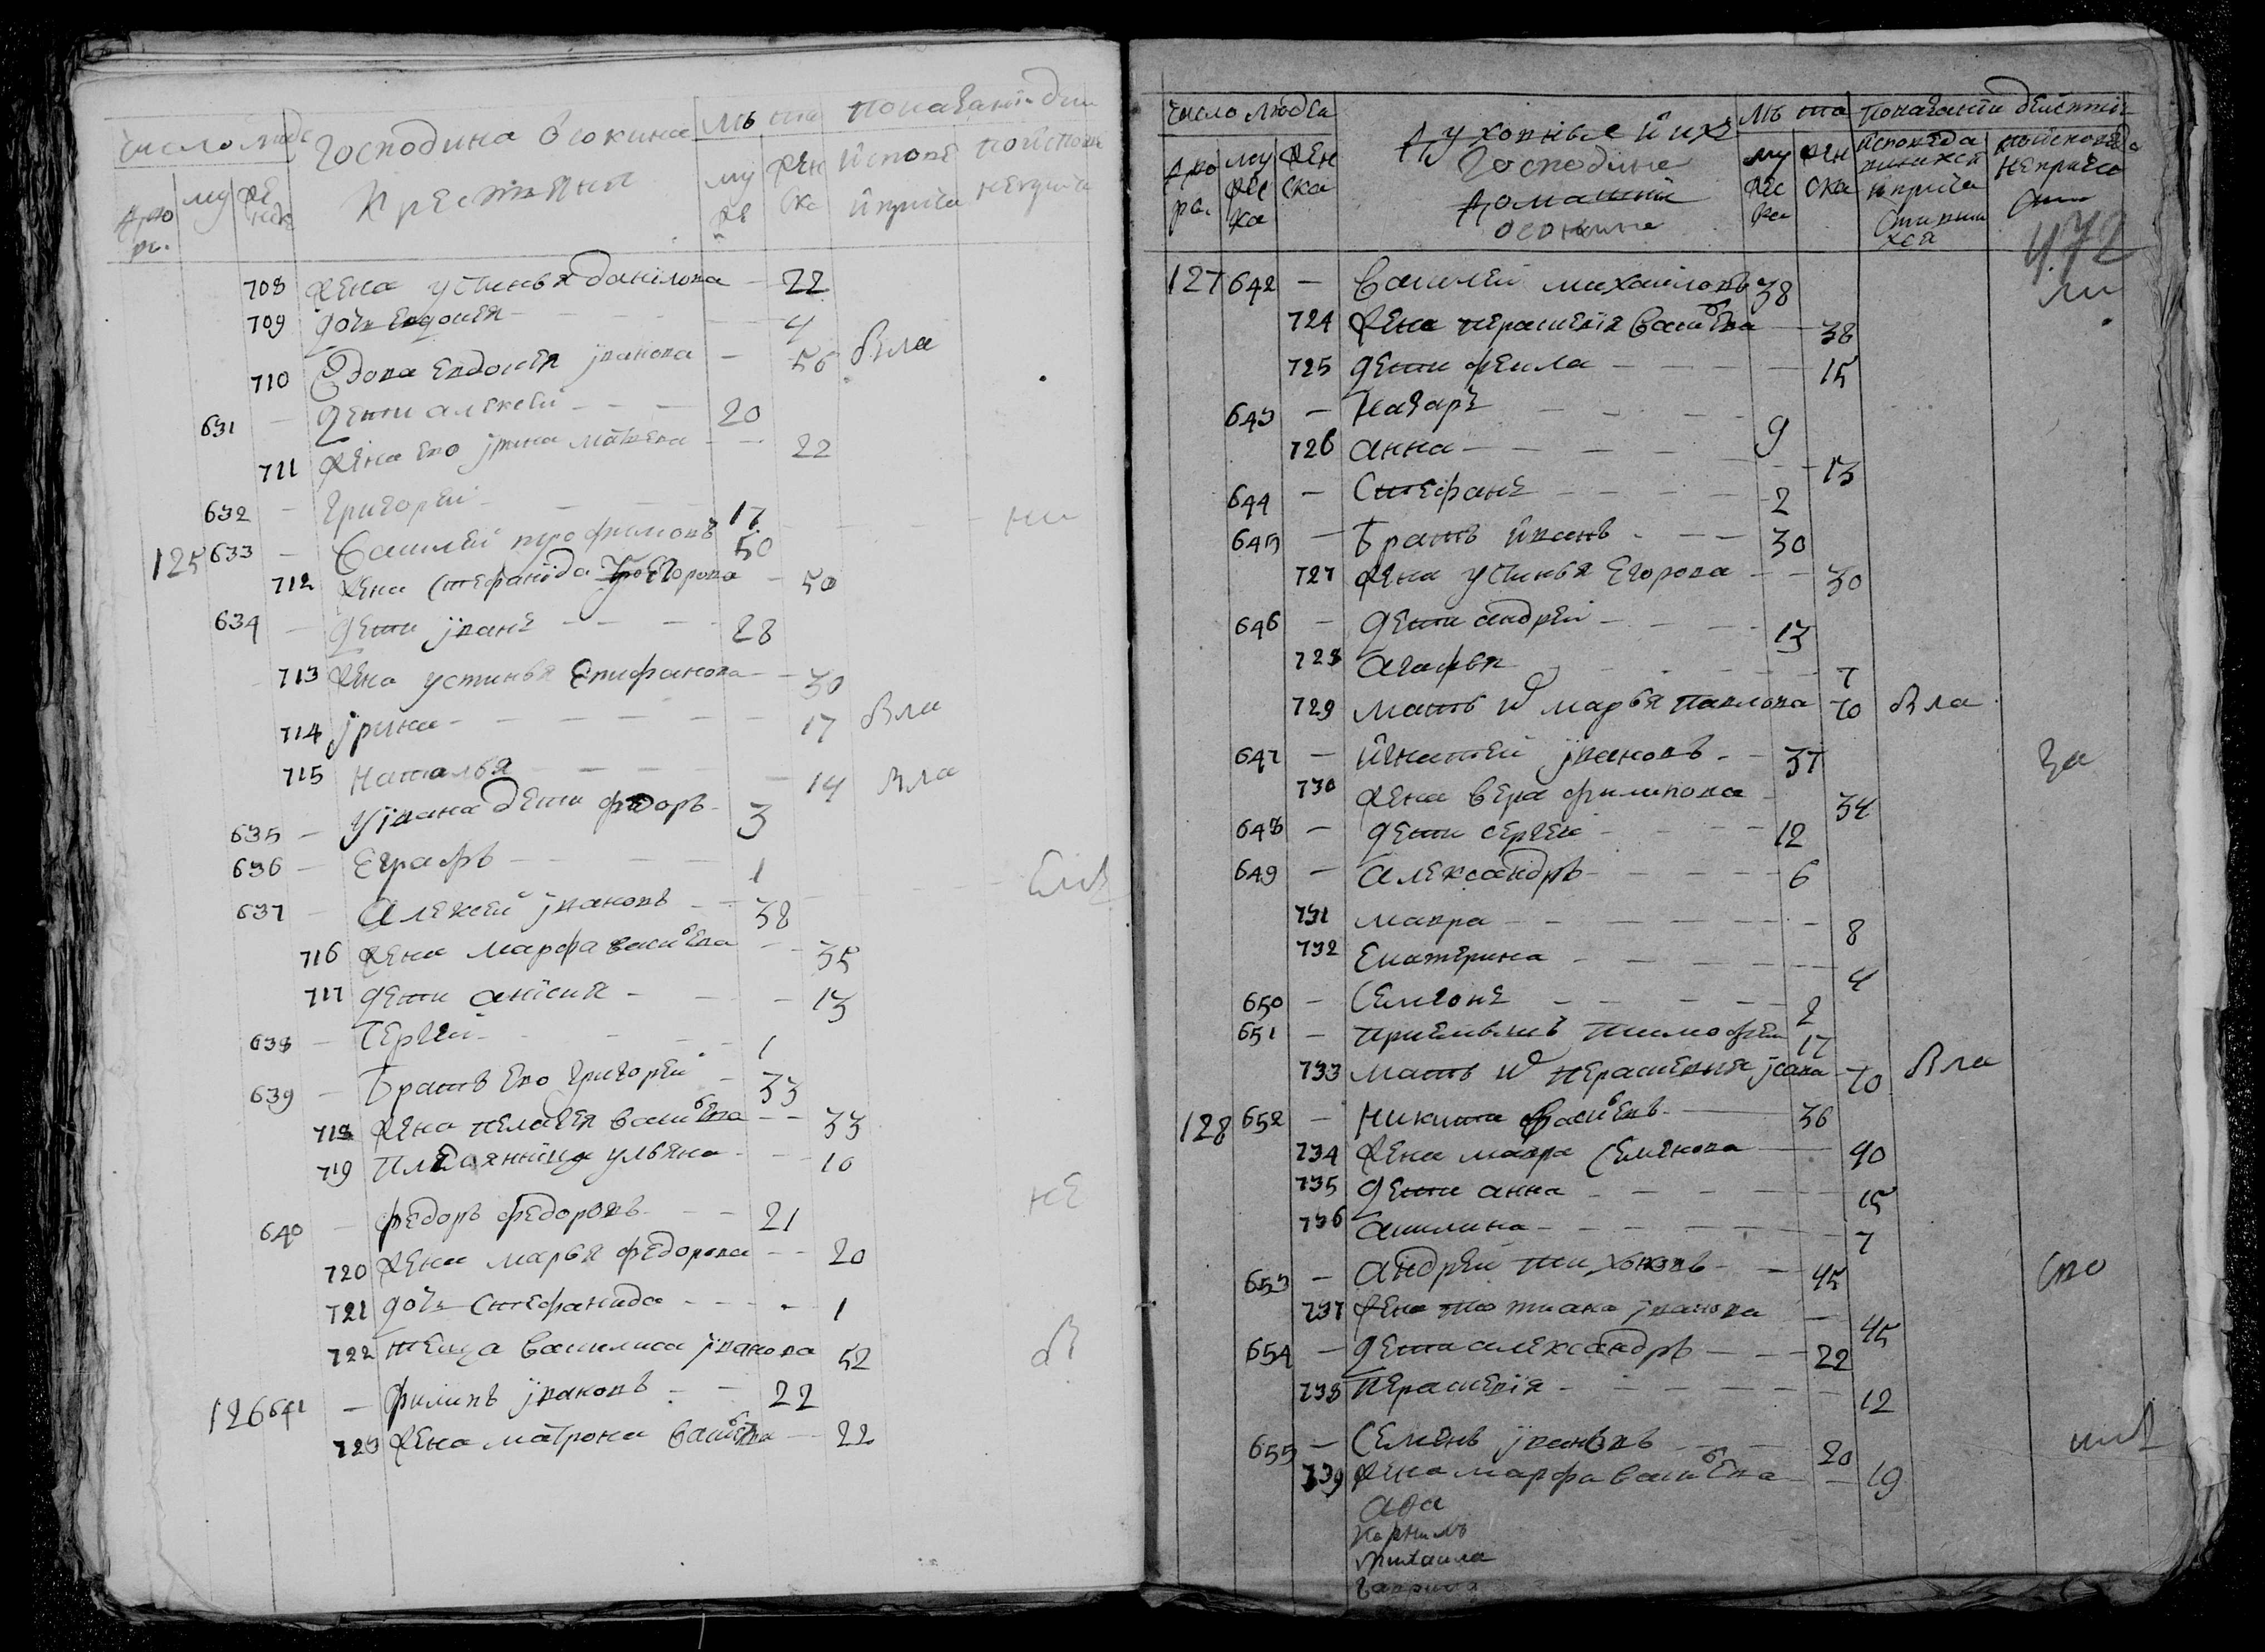 число людей Господина Осокина лѣта показанїе дѣи
Крестьяни
дво ры. му же нск му же жен ска испове и прича по испове не прича
708 жена устинья данїлова — 22
709 дочь Евдокея — 4
710 Вдова Евдокея Іванова — 56 была
631 — дети алексей — 20
711 жена Ево Ірина матвеева — 22
632 — григорей — 17
125 633 — Василей трофимовъ 50 ни
712 жена Стефанїда Егорова — 50
634 — дети Іванъ — 28
713 жена устинья Епифанова — 30
714 Ірина — 17 была
715 наталья — 14 была
635 — у Івана дети федоръ — 3
636 — Еграфъ — 1
637 — Алексей Івановъ — 38
716 жена марфа васильева — 35
717 дети анїсия — 13
638 — Сергей — 1
639 — братъ Ево григорей — 33
718 жена пелагея васильева — 33
719 племянница ульяна — 10
640 — федоръ федоровъ — 21 не
720 жена марья федорова — 20
721 дочь Стефанида — 1
722 теща василиса Іванова 52
126 641 — филипъ Івановъ — 22
723 жена матрона васильева — 22
число людей Духовные и ихъ лѣта показанїи дѣйствїи
Господине
домашнїи
осокине
дво ры. му жес ка жен ска му жес ка жен ска исповеда и прича по исповеда не прича
472
127 642 — Василей михаиловъ 38 ли
724 жена парасковїя васильева — 38
725 дети фекла — 15
643 — Назаръ — 9
726 анна — 13
644 — Стефанъ — 2
645 — братъ иванъ — 30
727 жена устинья Егорова — 30
646 — дети андрей — 13
728 агафья — 7
729 мать и марья павлова 70 была
647 — игнатей Івановъ — 37 за
730 жена вера филипова — 34
648 — дети сергей — 12
649 — александръ — 6
731 мавра — 8
732 Екатерина — 4
650 — Семионъ — 2
651 — приемышъ тимофеи 17
733 мать и 70 была
128 652 — никита васильевъ — 36
734 жена мавра Семенова — 40
735 дети анна — 15
736 акилина — 7
653 — андрей тихоновъ — 45 сво
737 жена татиана Іванова — 45
654 — дети александръ — 22
738 парасковїя — 12
655 — Семенъ Івановъ — 20
739 жена марфа васильева — 19